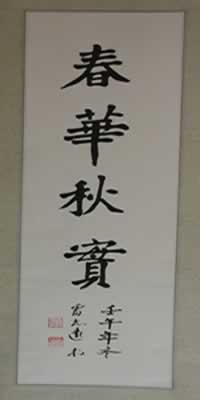 春華秋實
壬午年冬